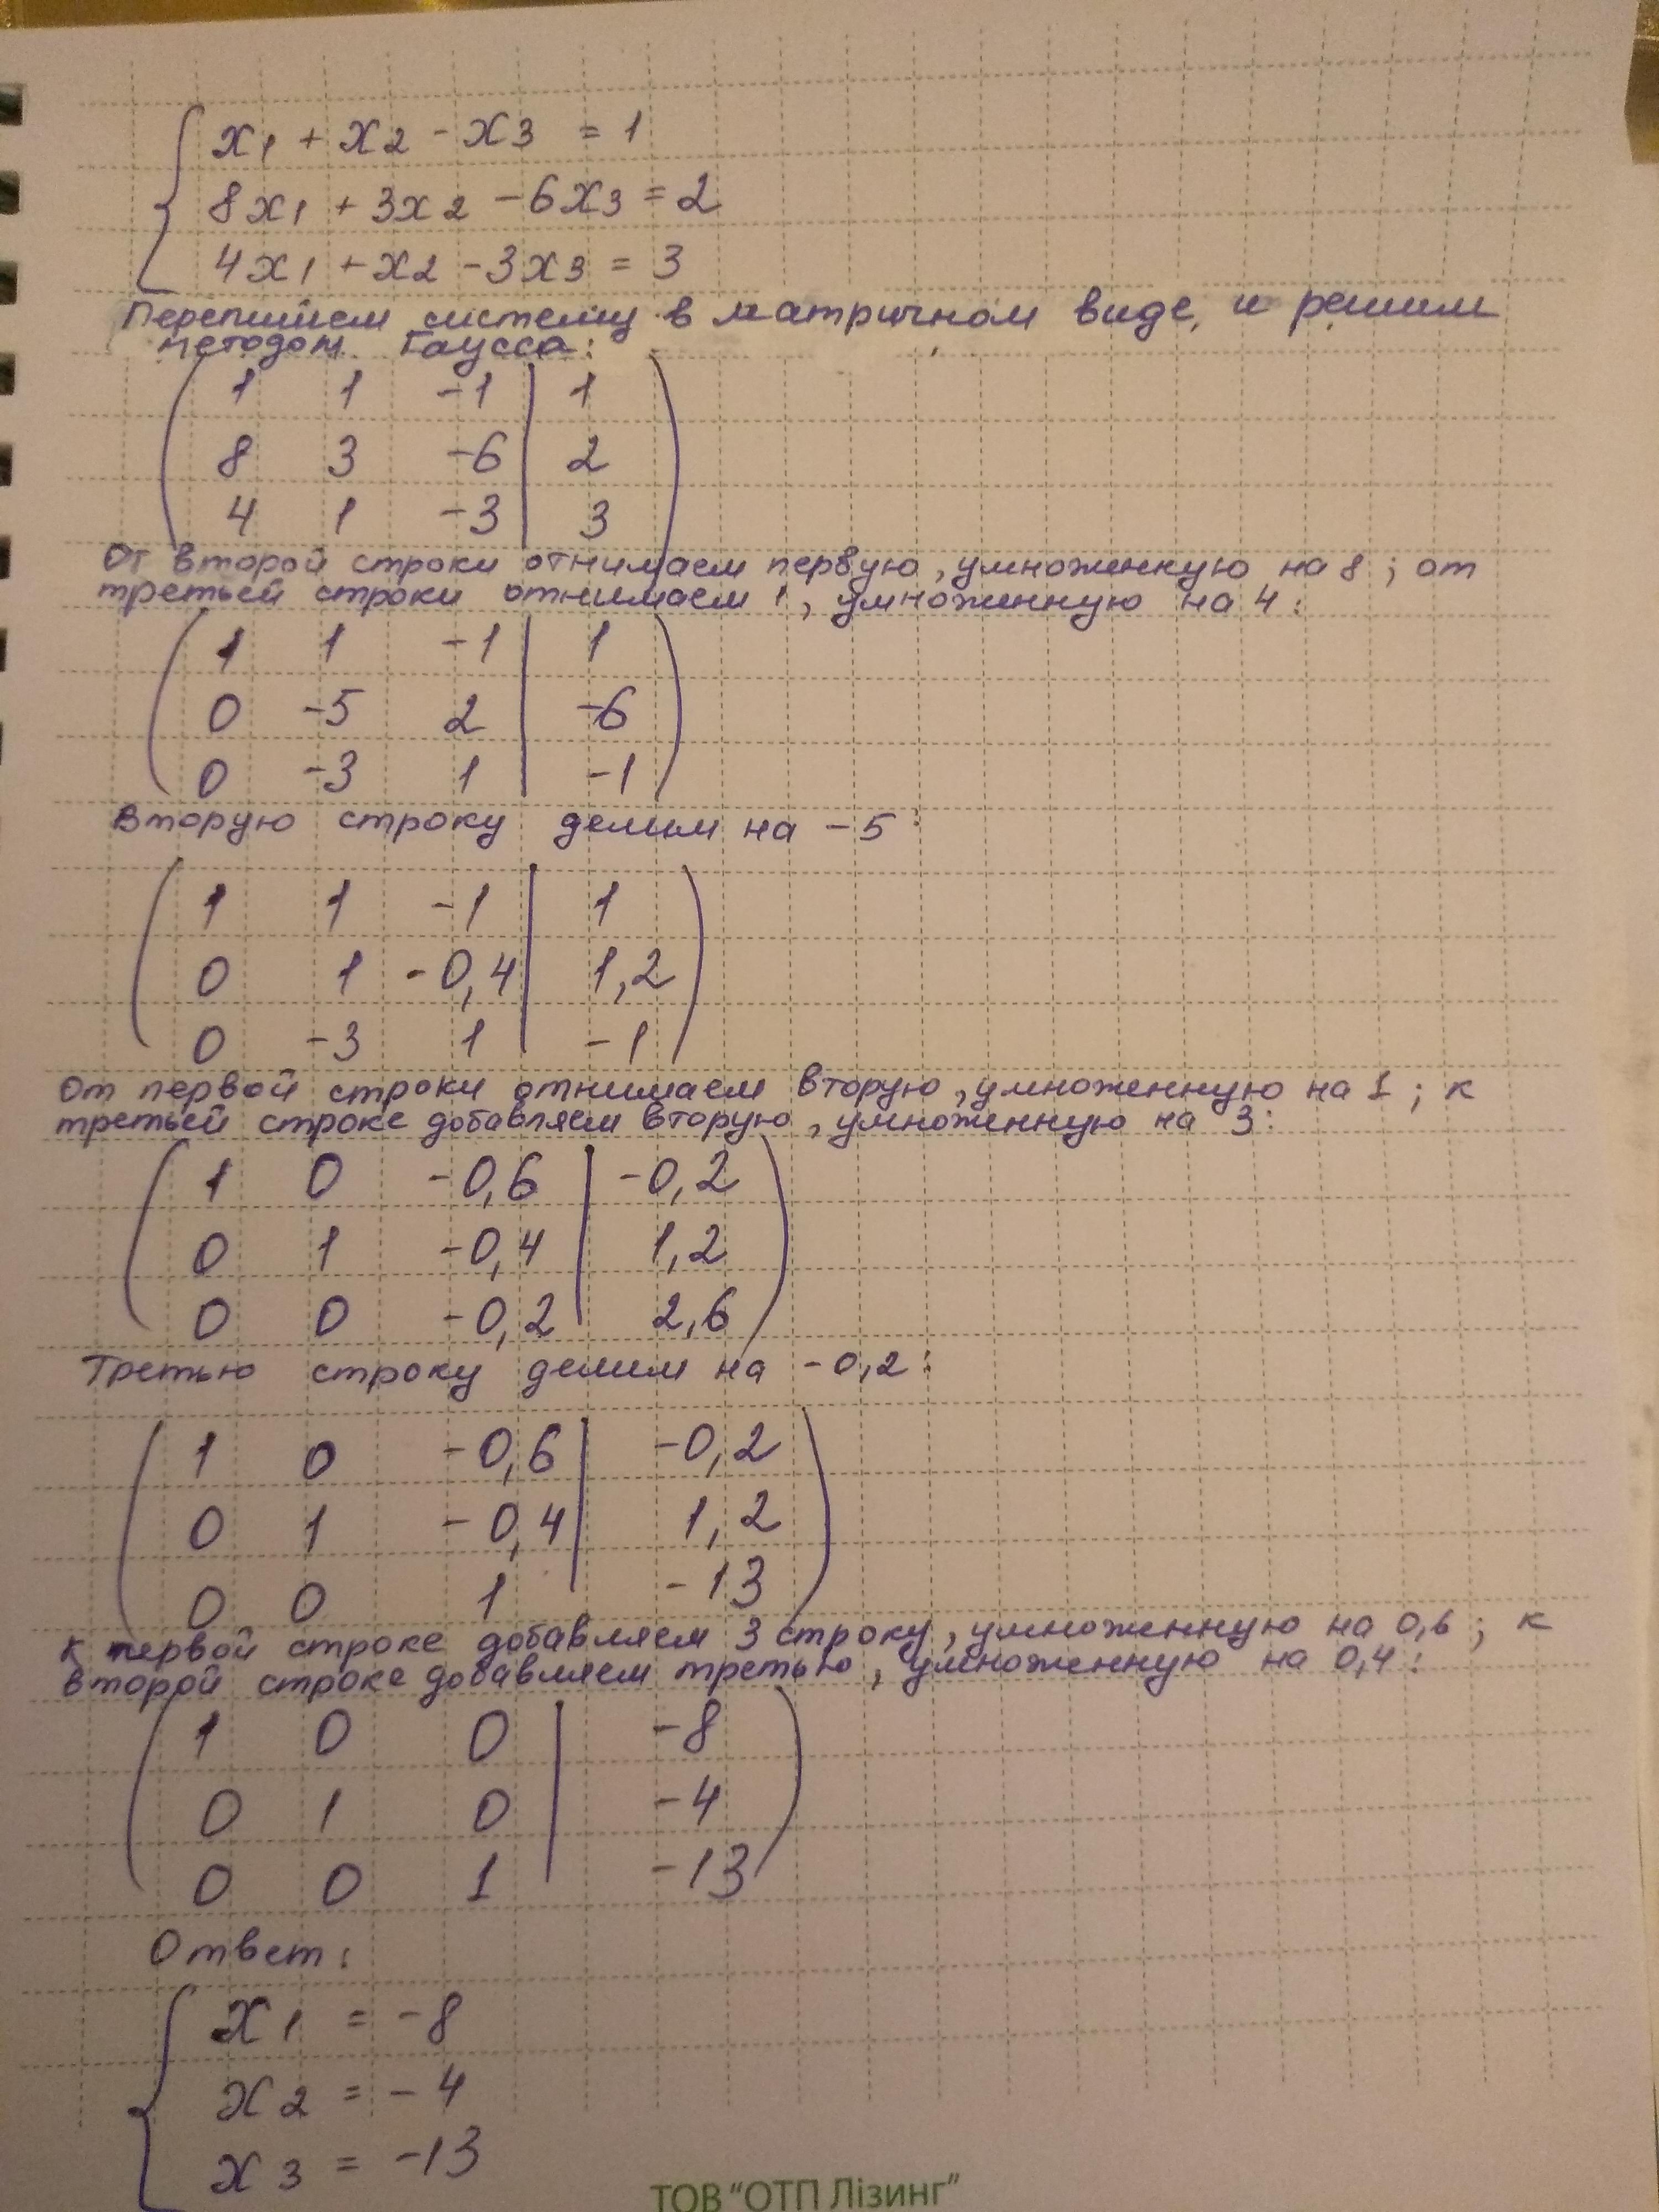 x1 + x2 - x3 = 1
8x1 + 3x2 - 6x3 = 2
4x1 + x2 - 3x3 = 3
Перепишем систему в матричном виде, и решим
методом Гаусса:
1 1 -1 | 1
8 3 -6 | 2
4 1 -3 | 3
От второй строки отнимаем первую, умноженную на 8; от
третьей строки отнимаем 1, умноженную на 4:
1 1 -1 | 1
0 -5 2 | -6
0 -3 1 | -1
Вторую строку делим на -5:
1 1 -1 | 1
0 1 -0,4 | 1,2
0 -3 1 | -1
От первой строки отнимаем вторую, умноженную на 1; к
третьей строке добавляем вторую, умноженную на 3:
1 0 -0,6 | -0,2
0 1 -0,4 | 1,2
0 0 -0,2 | 2,6
Третью строку делим на -0,2:
1 0 -0,6 | -0,2
0 1 -0,4 | 1,2
0 0 1 | -13
К первой строке добавляем 3 строку, умноженную на 0,6; к
второй строке добавляем третью, умноженную на 0,4:
1 0 0 | -8
0 1 0 | -4
0 0 1 | -13
Ответ:
x1 = -8
x2 = -4
x3 = -13
ТОВ "ОТП Лізинг"